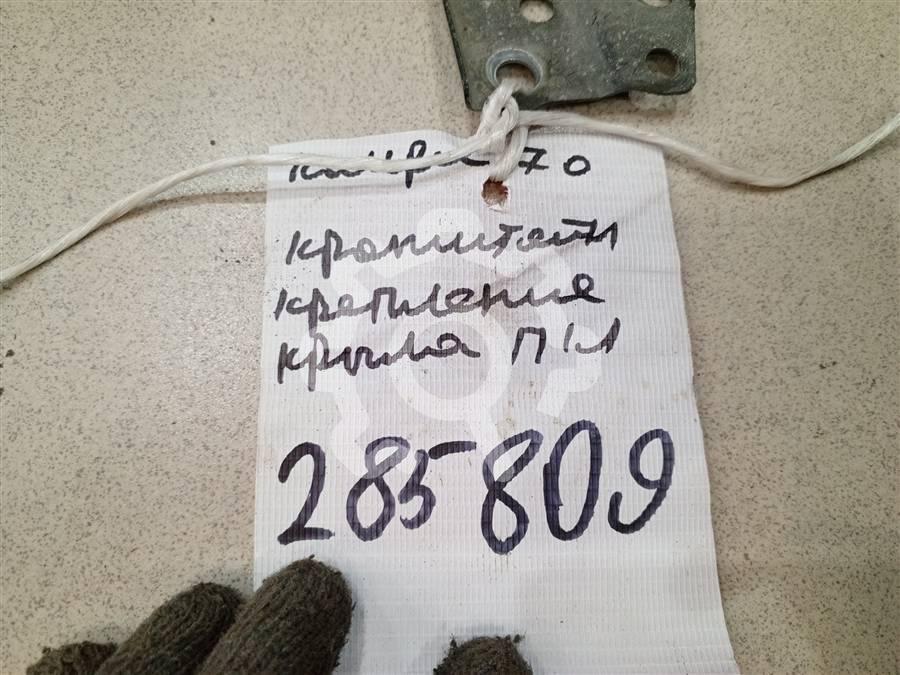 Камри 70
кронштейн
крепление
крыла П/Л
285809